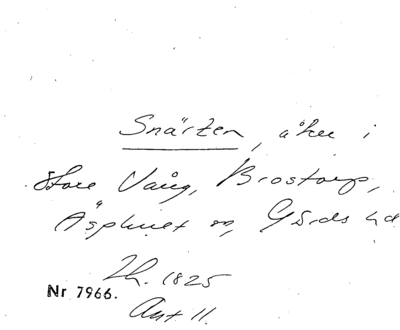 Snärten, åker i
Store Vång, Brostorp,
Äsphult sn, Gärds hd
Lh. 1825
Nr 7966.
Akt 11.